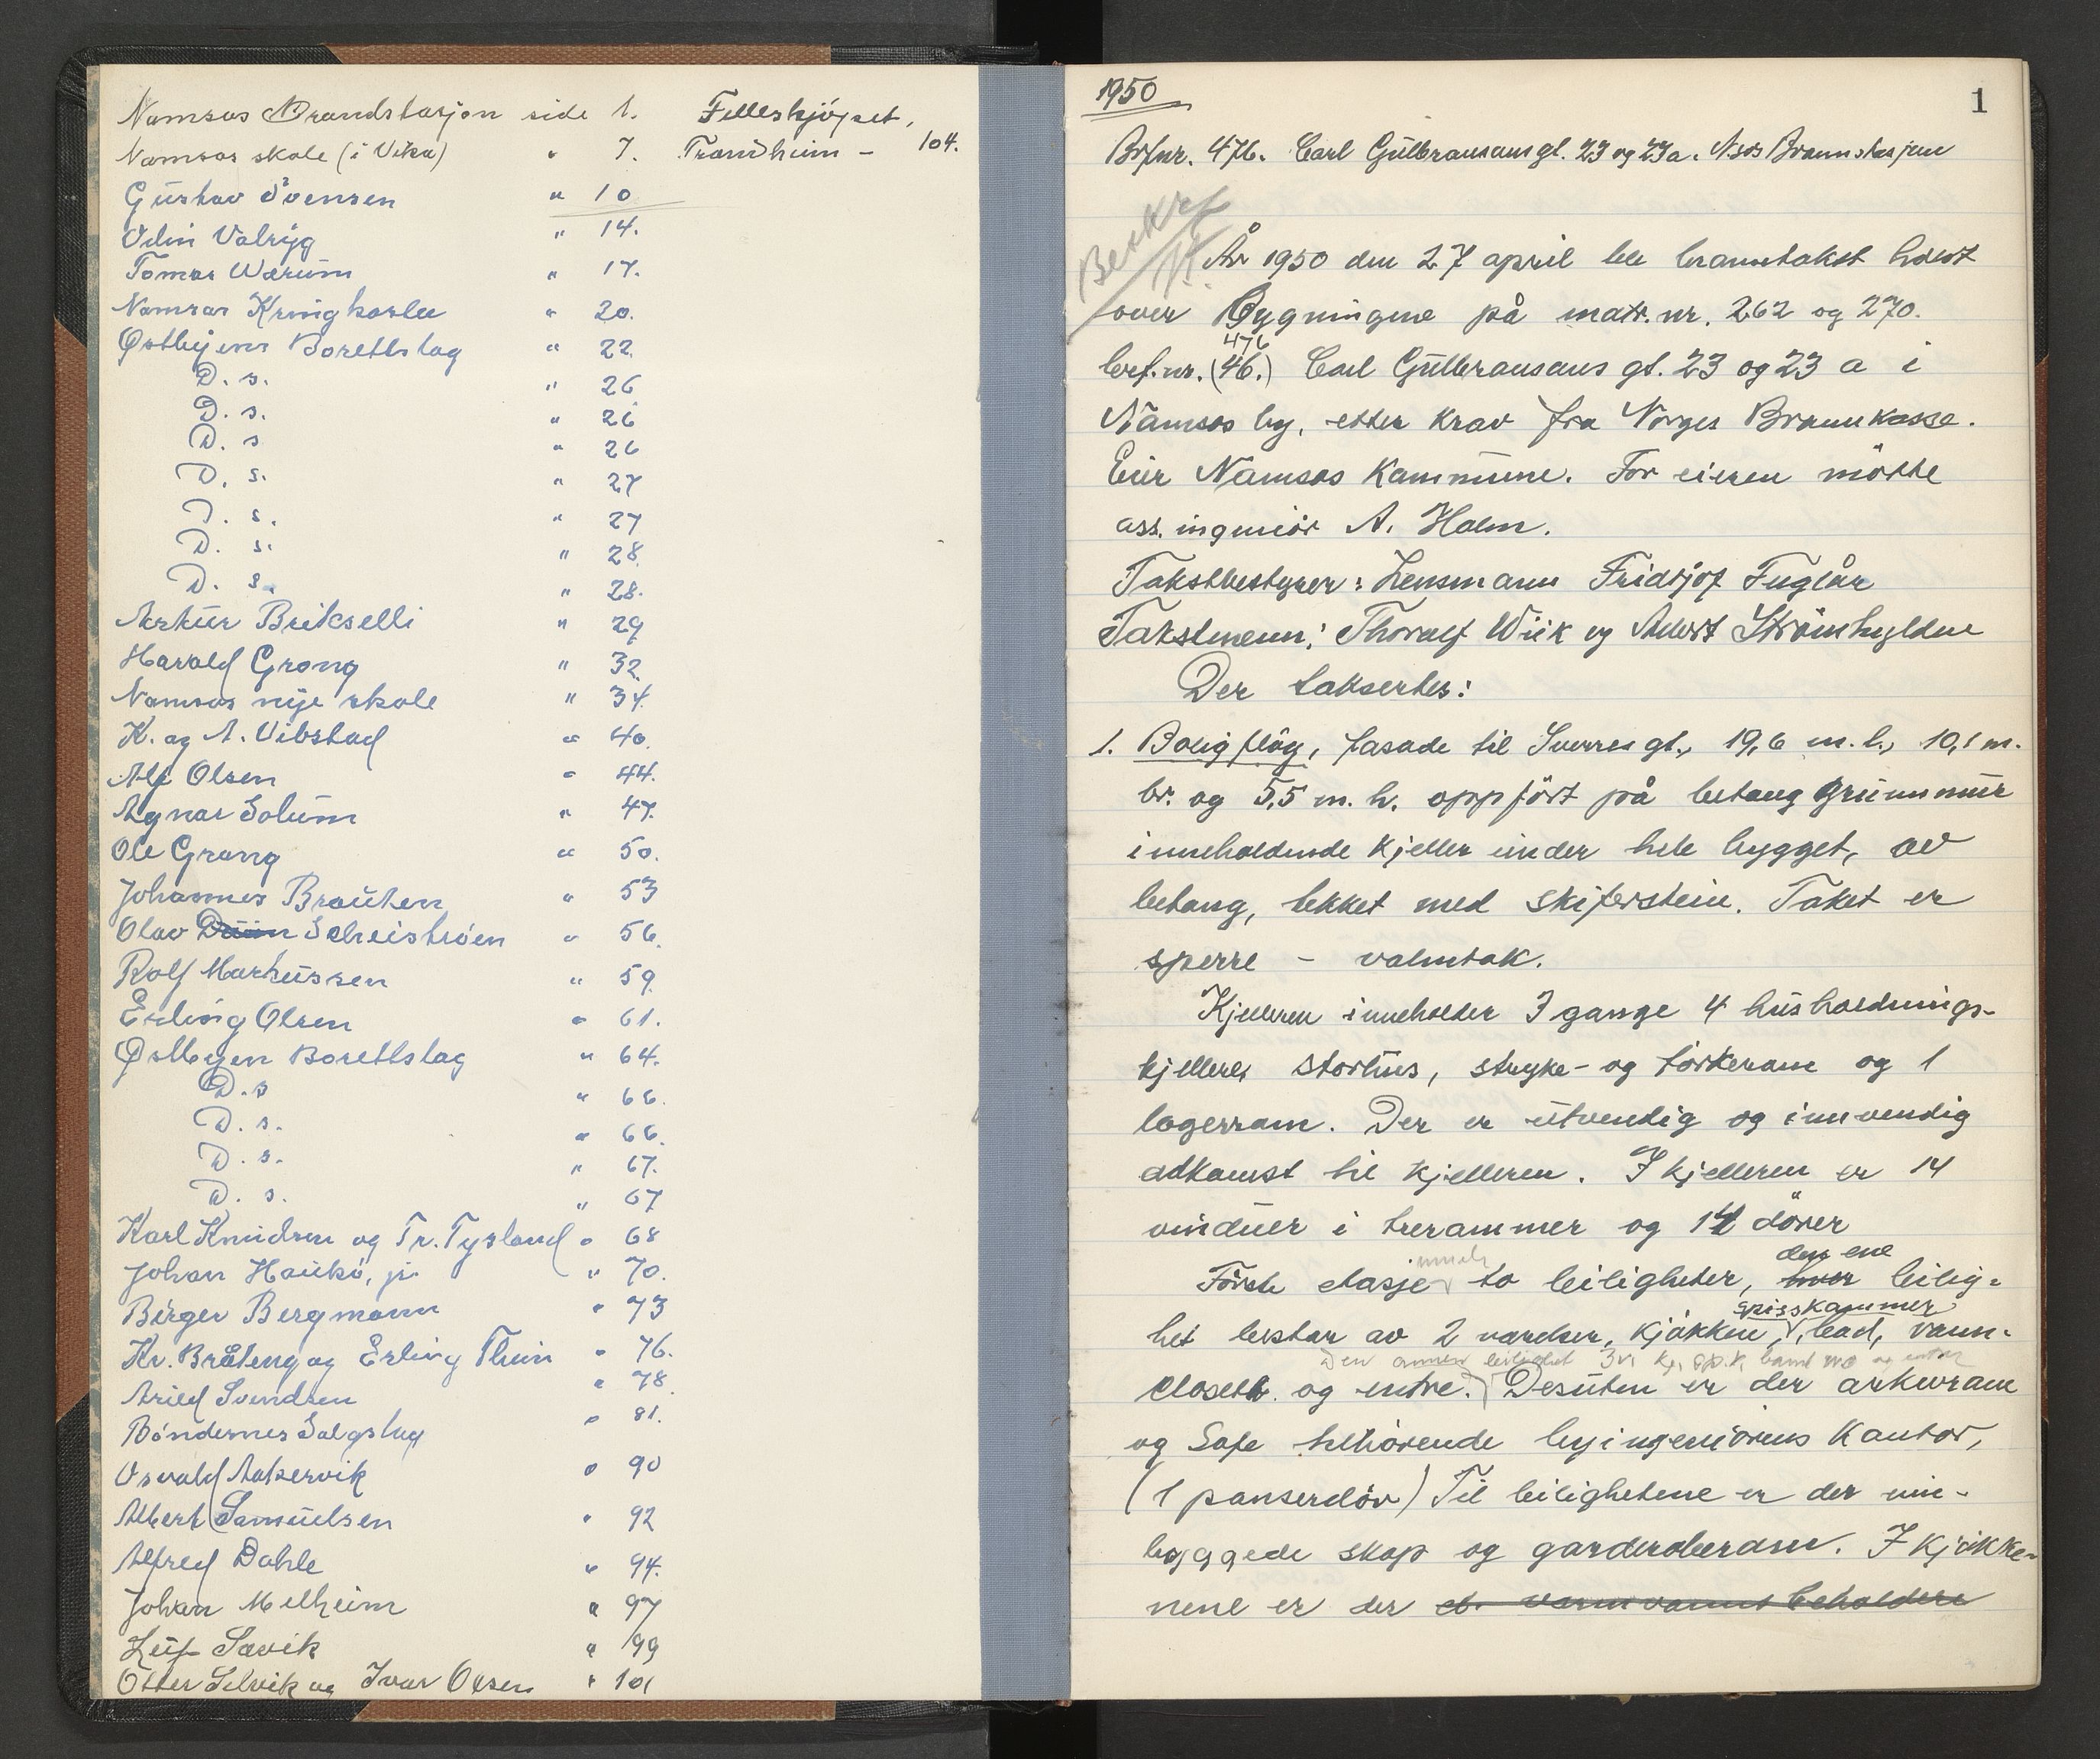 Namsos Brandstasjon side 1.
Namsos skole (i Vika) " 7.
Felleskjöpet,
Trondheim - 104.
Gustav Svensen " 10
Odin Valryg " 14.
Tomas Wærum " 17.
Namsos Kringkaster " 20.
Østbyens Borettslag " 22.
D. s. " 26
D. s. " 26
D. s " 26
D. s. " 27
D. s. " 27
D. s. " 28
D. s. " 28.
Arthur Brikselli " 29
Harald Grong " 32
Namsos nye skole " 34.
K. og A. Vibstad " 40.
Alf Olsen " 44.
Agnar Solum " 47.
Ole Grong " 50.
Johannes Brauten " 53
Olav Duun Scheistrøen " 56.
Rolf Markussen " 59.
Erling Olsen " 61.
Østbyen Borettslag " 64.
D. s " 66.
D. s. " 66.
D. s. " 67.
D. s. " 67
Karl Knudsen og Tr. Tysland " 68
Johan Haukø, jr. " 70.
Birger Bergmann " 73
Kr. Bråteng og Erling Thun " 76.
Arild Svendsen " 78.
Böndernes Salgslag " 81.
Osvald Aakervik " 90
Albert Samuelsen " 92
Alfred Dahle " 94.
Johan Melheim " 97
Leif Sævik " 99
Otter Selvik og Ivar Olsen " 101
1950
1
Brfnr. 476. Carl Gulbransons gt. 23 og 23a. Nsos Brannstasjon
Beskrf
År 1950 den 27 april ble branntakst holdt
over Bygningene på matr. nr. 262 og 270.
476
brf. nr. (46.) Carl Gulbransons gt. 23 og 23 a i
Namsos by, etter krav fra Norges Brannkasse.
Eier Namsos Kommune. For eieren møtte
ass. ingeniör A. Holm.
Takstbestyrer: Lensmann Fridtjof Fuglår
Takstmenn: Thoralf Wiik og Albert Strömhylden
Der taksertes:
1. Boligflöy, fasade til Sverres gt., 19,6 m. l., 10,1 m.
br. og 5,5 m. h. oppfört på betong grunnmur
inneholdende kjeller under hele bygget, av
betong, tekket med skiferstein. Taket er
sperre - valmtak.
Kjelleren inneholder 3 gange 4 husholdnings-
kjellere, storhus, stryke- og törkerom og 1
lagerrom. Der er utvendig og innvendig
adkomst til kjelleren. I kjelleren er 14
vinduer i trerammer og 14 dörer
inneh den ene
Förste etasje to leiligheter, hver leilig-
spisskammer
het bestar av 2 værelser, kjökken, bad, vann-
Den annen leilighet 3 v. kj, sp.k, bamt wc og entre
closett. og entre. Desuten er der arkivrom
og Safe tilhörende byingeniörens kontor,
(1 panserdör) Til leilighetene er der inn-
byggede skap og garderoberom. I kjökke-
nene er der el. varmvanns beholdere